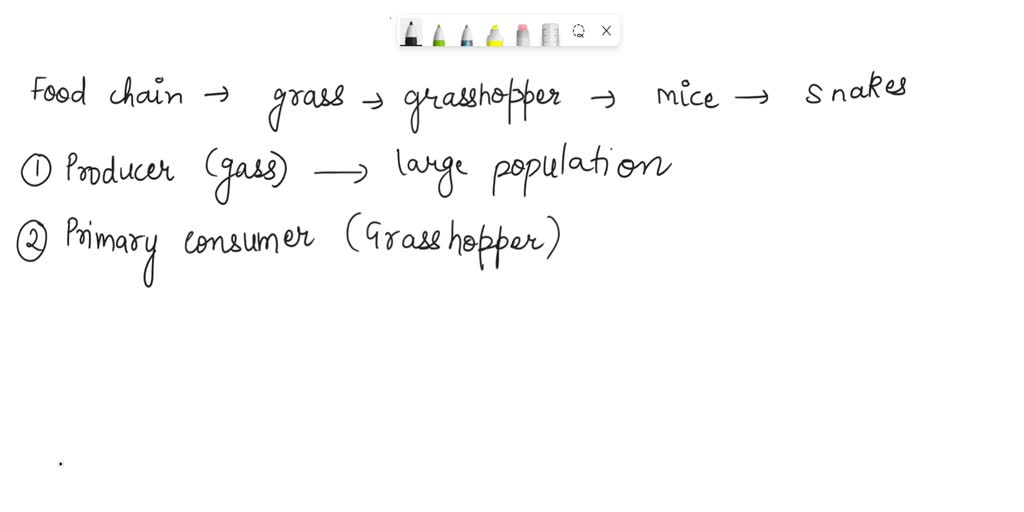 Food chain → grass → grasshopper → mice → snakes
① Producer (gass) → large population
② Primary consumer (Grasshopper)